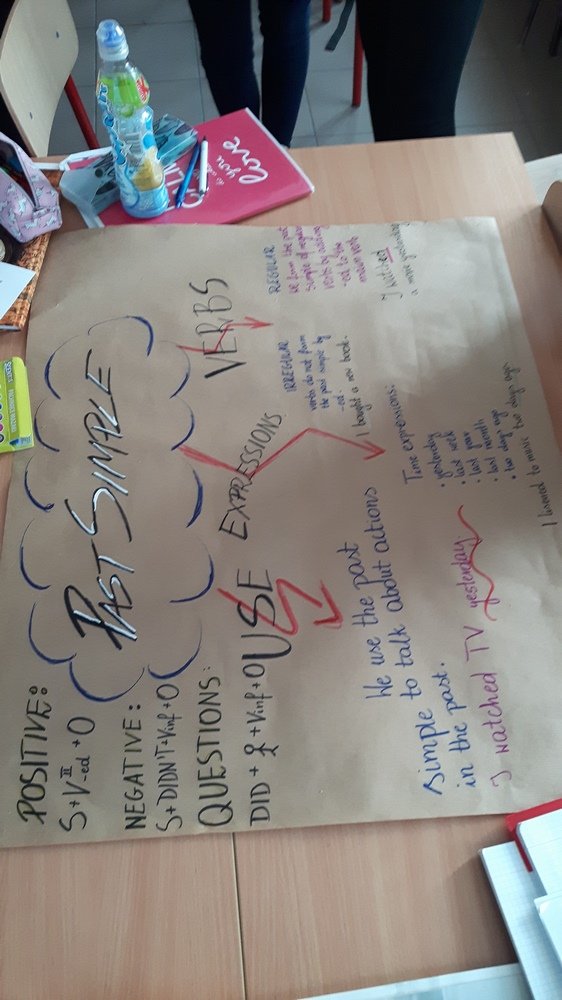 PAST SIMPLE
POSITIVE:
S+V II -ed + O
NEGATIVE:
S+DIDN'T+Vinf+O
QUESTIONS:
DID + S + Vinf + O
USE
We use the past
simple to talk about actions
in the past.
I watched TV yesterday
EXPRESSIONS
Time expressions:
• yesterday
• last week
• last year
• last month
• two days ago
I listened to music two days ago.
VERBS
IRREGULAR
verbs do not form
the past simple by
-ed.
I bought a new book.
REGULAR
We form the past
simple of regular
verbs by adding
-ed to the
main verb
I watched
a movie yesterday
love